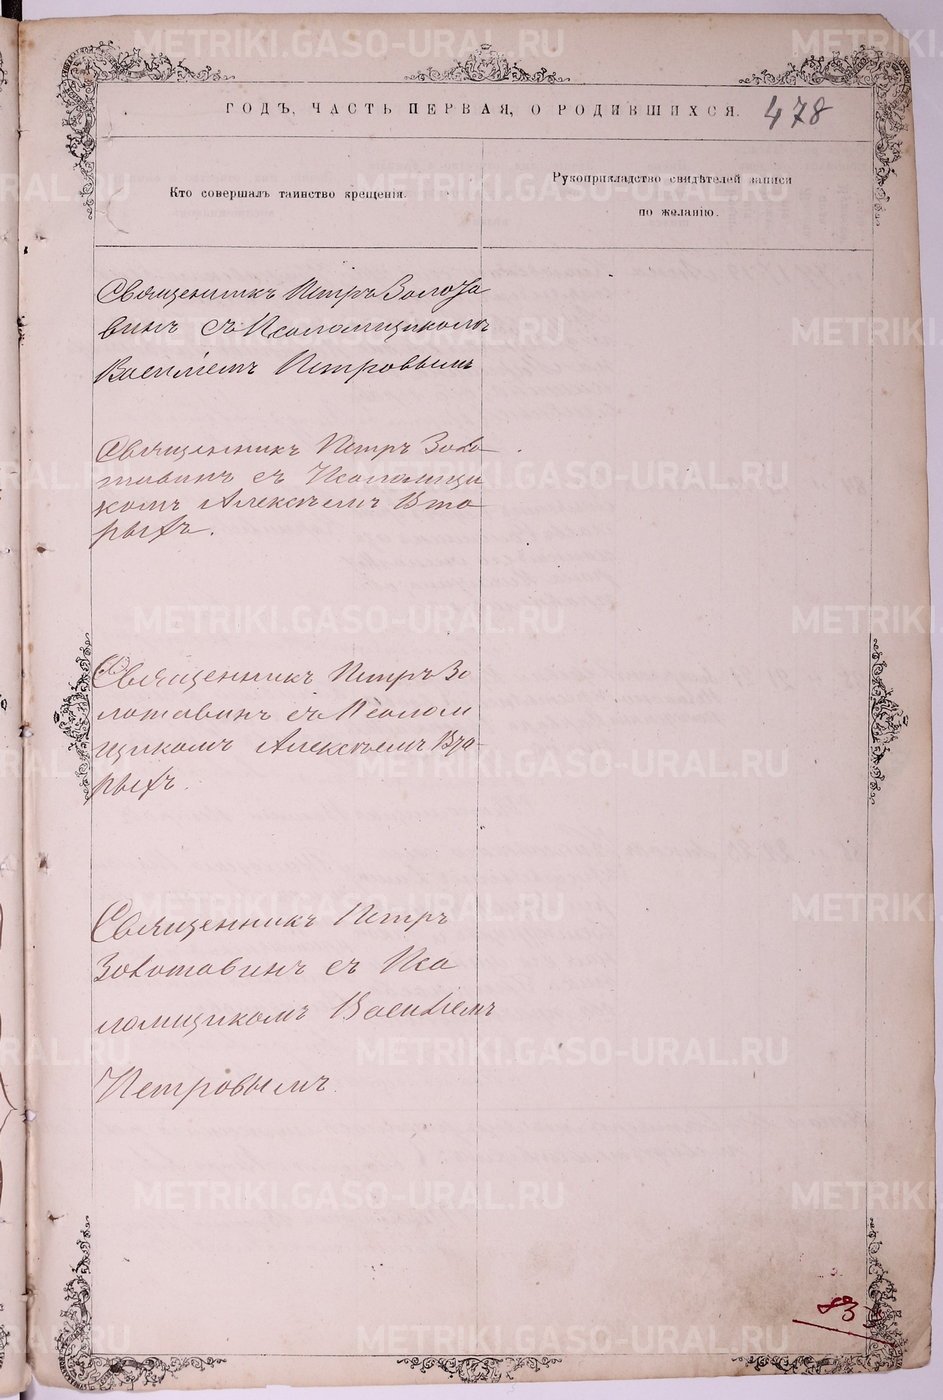 ГОДЪ, ЧАСТЬ ПЕРВАЯ, О РОДИВШИХСЯ. 478
Кто совершалъ таинство крещенія.
Рукоприкладство свидѣтелей записи
по желанію.
Священникъ Петръ Золота
винъ съ Псаломщикомъ
Василіемъ Петровымъ
Священникъ Петръ Золо
тавинъ съ Псаломщи
комъ Алексѣемъ Вто
рыхъ.
Священникъ Петръ Зо
лотавинъ съ Псалом
щикомъ Алексѣемъ Вто
рыхъ.
Священникъ Петръ
Золотавинъ съ Пса
ломщикомъ Василіемъ
Петровымъ.
83
METRIKI.GASO-URAL.RU